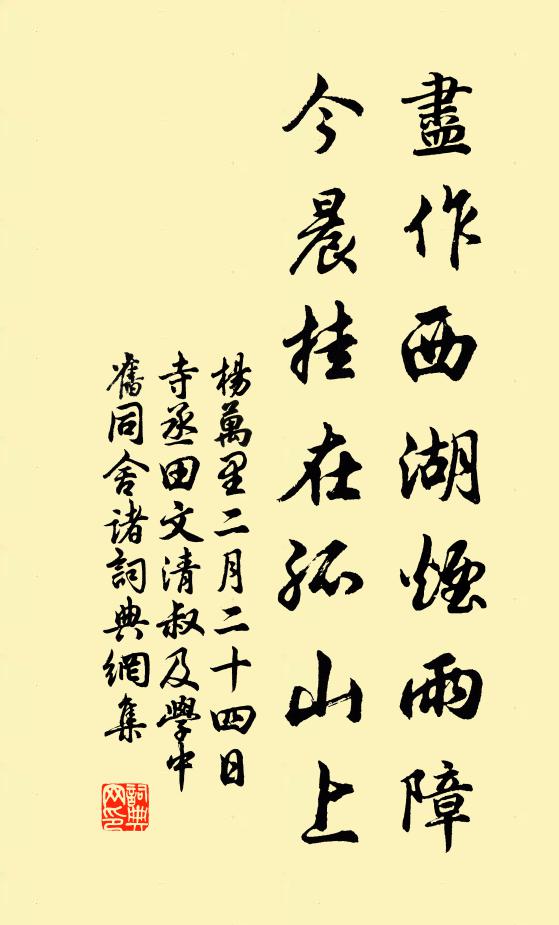 盡作西湖煙雨障
今晨挂在孤山上
楊萬里二月二十四日
寺丞田文清叔及學中
舊同舍诸詞典網集
詞典
网印